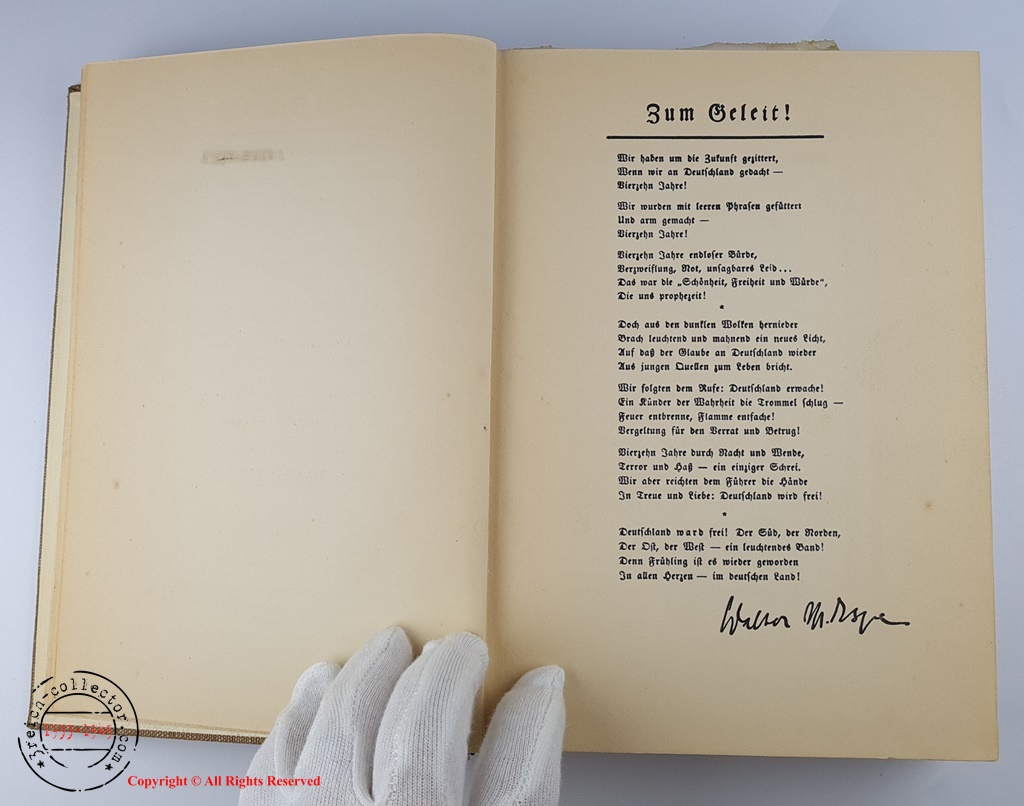 Zum Geleit!
Wir haben um die Zukunft gezittert,
Wenn wir an Deutschland gedacht —
Vierzehn Jahre!
Wir wurden mit leeren Phrasen gefüttert
Und arm gemacht —
Vierzehn Jahre!
Vierzehn Jahre endloser Bürde,
Verzweiflung, Not, unsagbares Leid...
Das war die „Schönheit, Freiheit und Würde“,
Die uns prophezeit!
*
Doch aus den dunklen Wolken hernieder
Brach leuchtend und mahnend ein neues Licht,
Auf daß der Glaube an Deutschland wieder
Aus jungen Quellen zum Leben bricht.
Wir folgten dem Rufe: Deutschland erwache!
Ein Künder der Wahrheit die Trommel schlug —
Feuer entbrenne, Flamme entfache!
Vergeltung für den Verrat und Betrug!
Vierzehn Jahre durch Nacht und Wende,
Terror und Haß — ein einziger Schrei.
Wir aber reichten dem Führer die Hände
In Treue und Liebe: Deutschland wird frei!
*
Deutschland ward frei! Der Süd, der Norden,
Der Ost, der West — ein leuchtendes Band!
Denn Frühling ist es wieder geworden
In allen Herzen — im deutschen Land!
Walter M.
3reich-collector.com
1933-1945
Copyright © All Rights Reserved